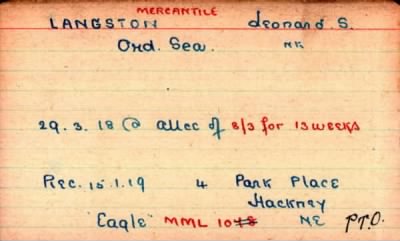 MERCANTILE
LANGSTON Leonard S.
Ord. Sea. NK
29. 3. 18 @ allce of 8/3 for 13 weeks
Rec. 15.1.19 4 Park Place
Hackney
"Eagle" MML 1048 NE P.T.O.